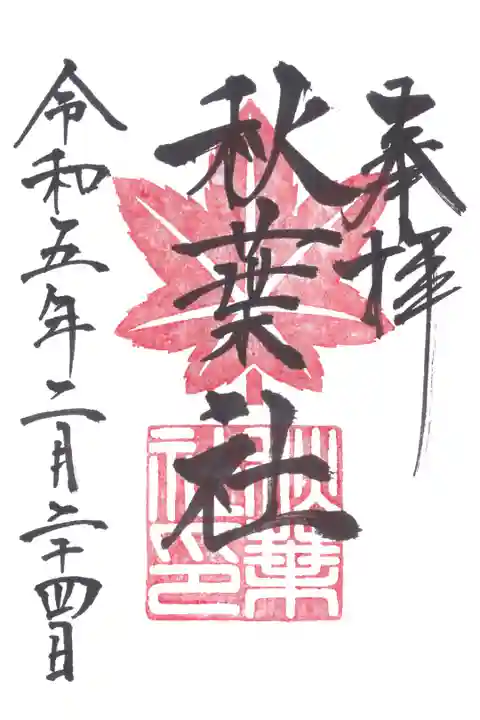 奉拝
秋葉社
秋葉社印
令和五年二月二十四日